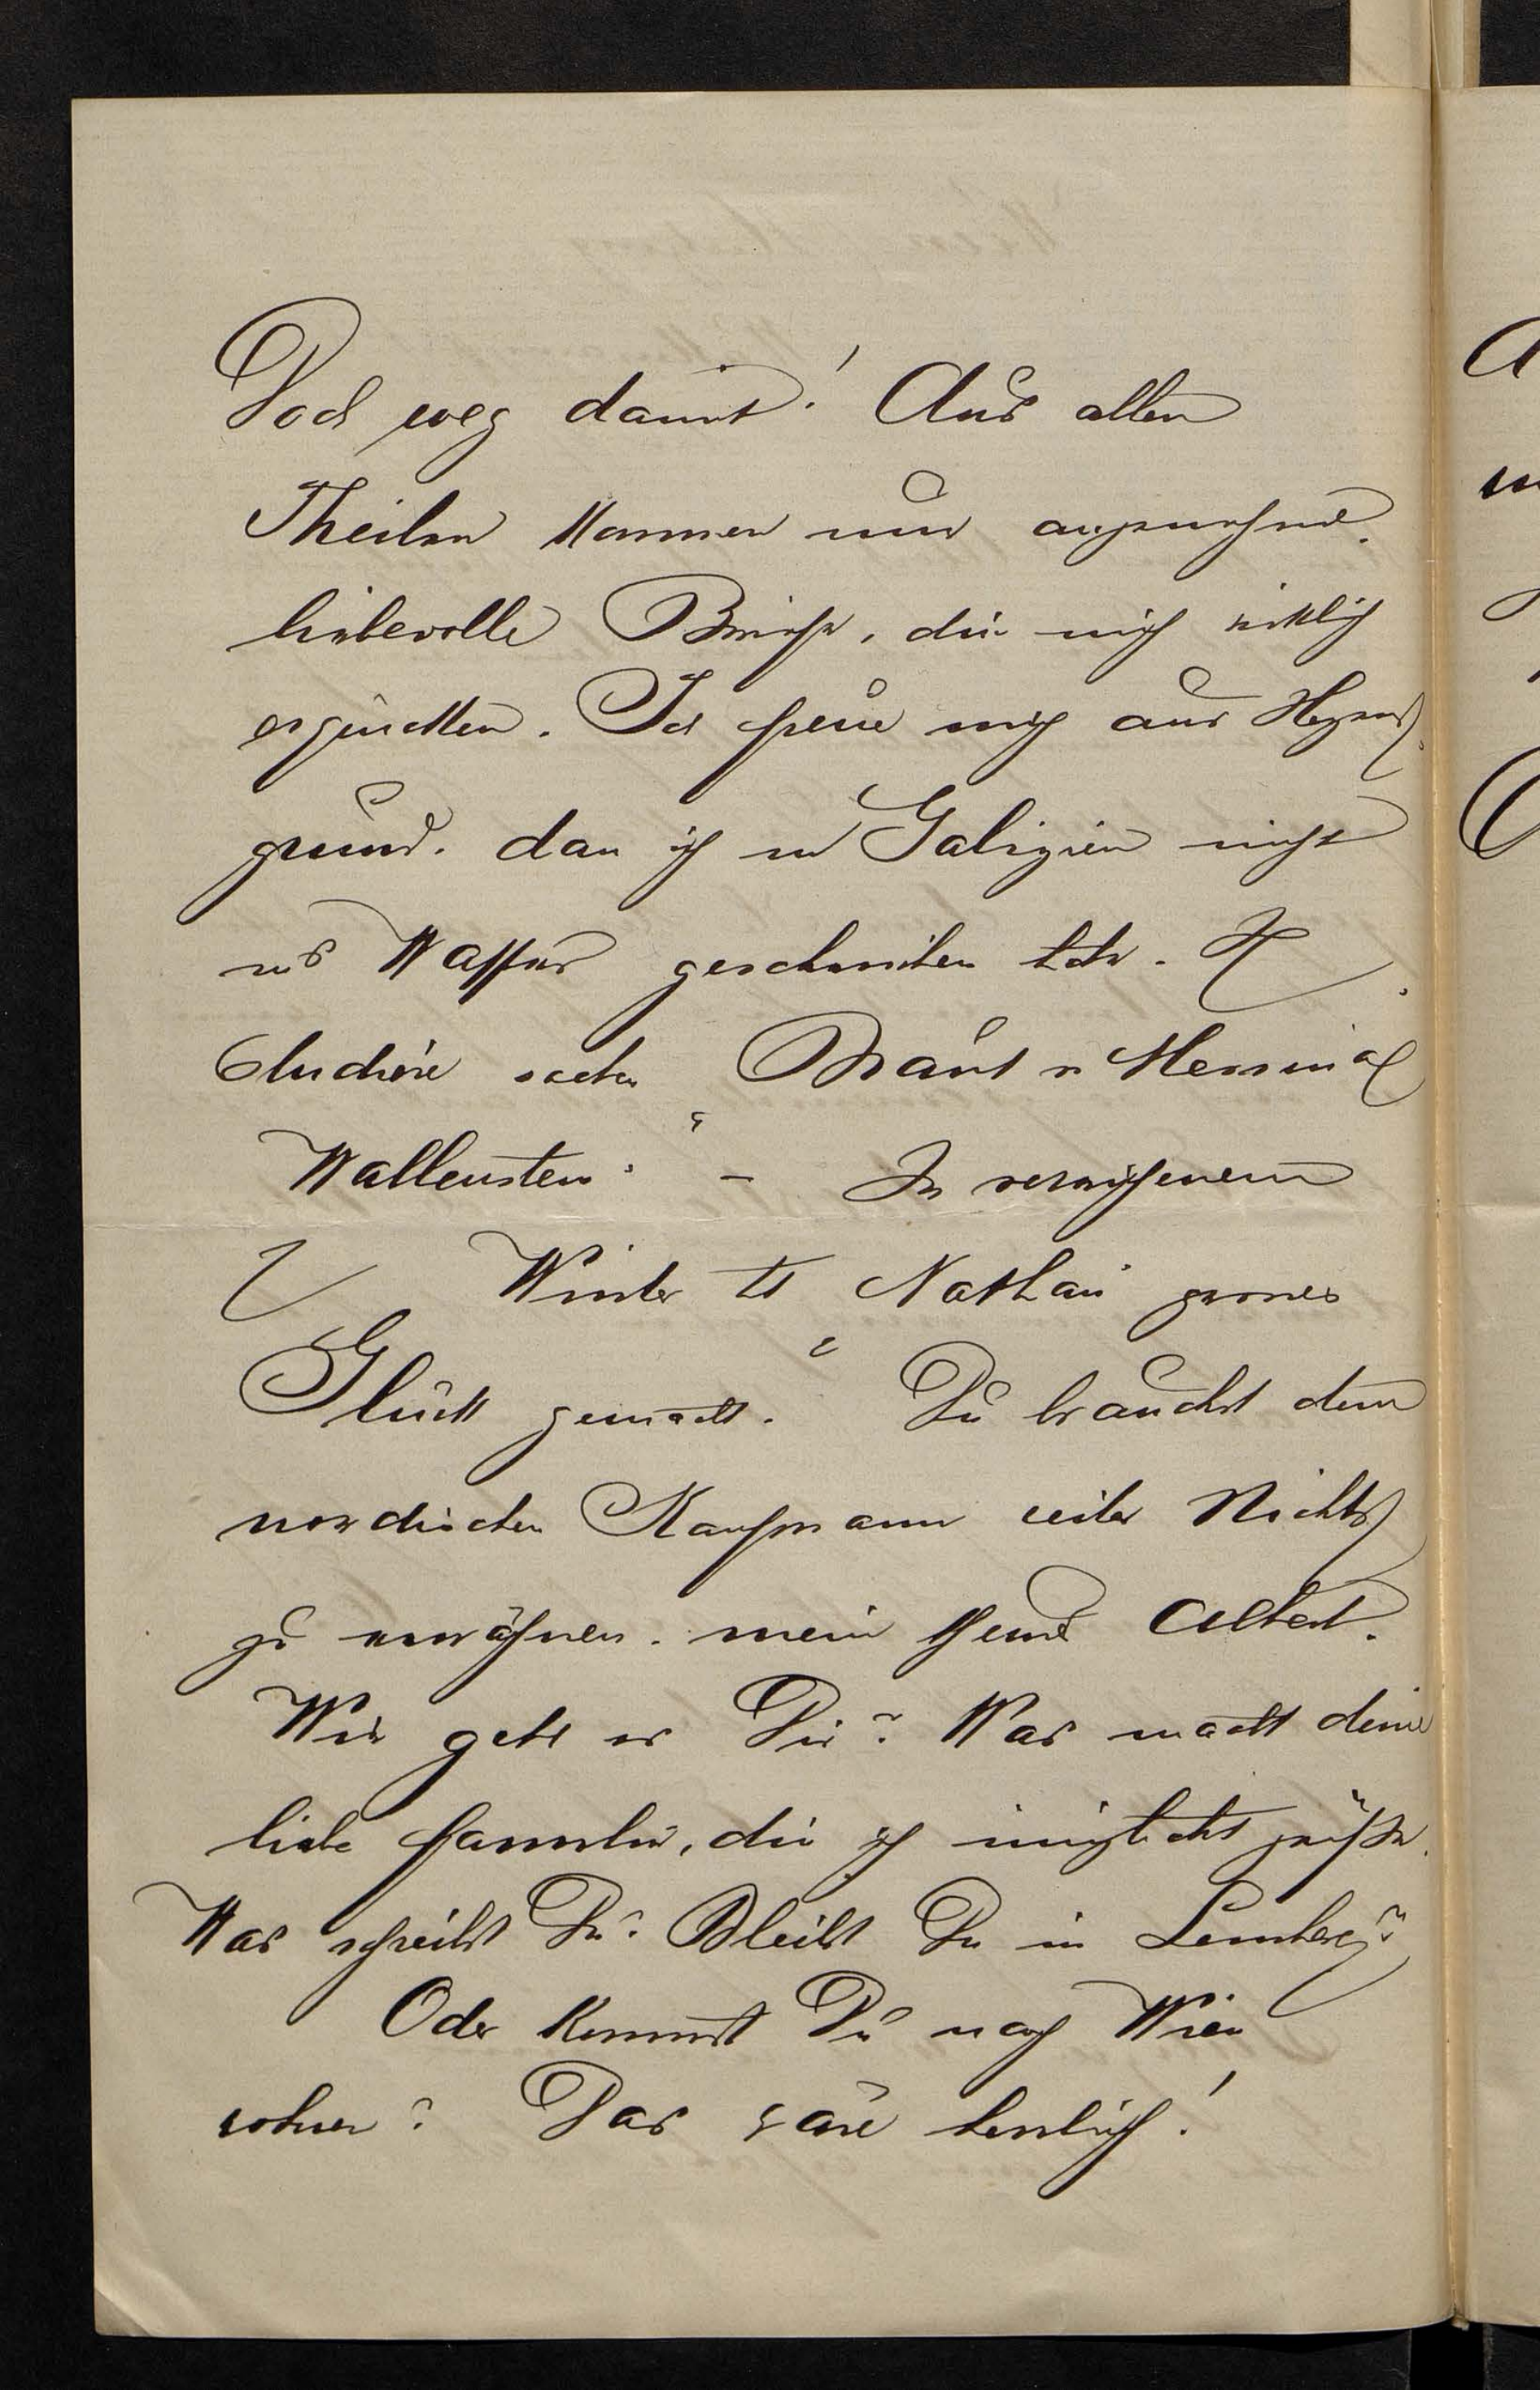 Doch weg damit! Aus allen
Theilen kommen nun angenehme,
liebevolle Briefe, die mich wirklich
erquicken. Ich freue mich aus Herzens
grund, dass ich in Galizien nicht
ins Wasser geschrieben habe. Ich
studiere soeben Braut v Messina
Wallenstein. – Im verwichenem
Winter hat Nathan grosses
Glück gemacht. Du brauchst dem
nordischen Kaufmann weiter Nichts
zu erwähnen. mein Freund Albert.
Wie geht es Dir? Was macht deine
liebe Familie, die ich innigst grüße.
Was schreibst Du? Bleibst Du in Lemberg?
Oder kommst Du nach Wien
wohnen? Das wäre herrlich!